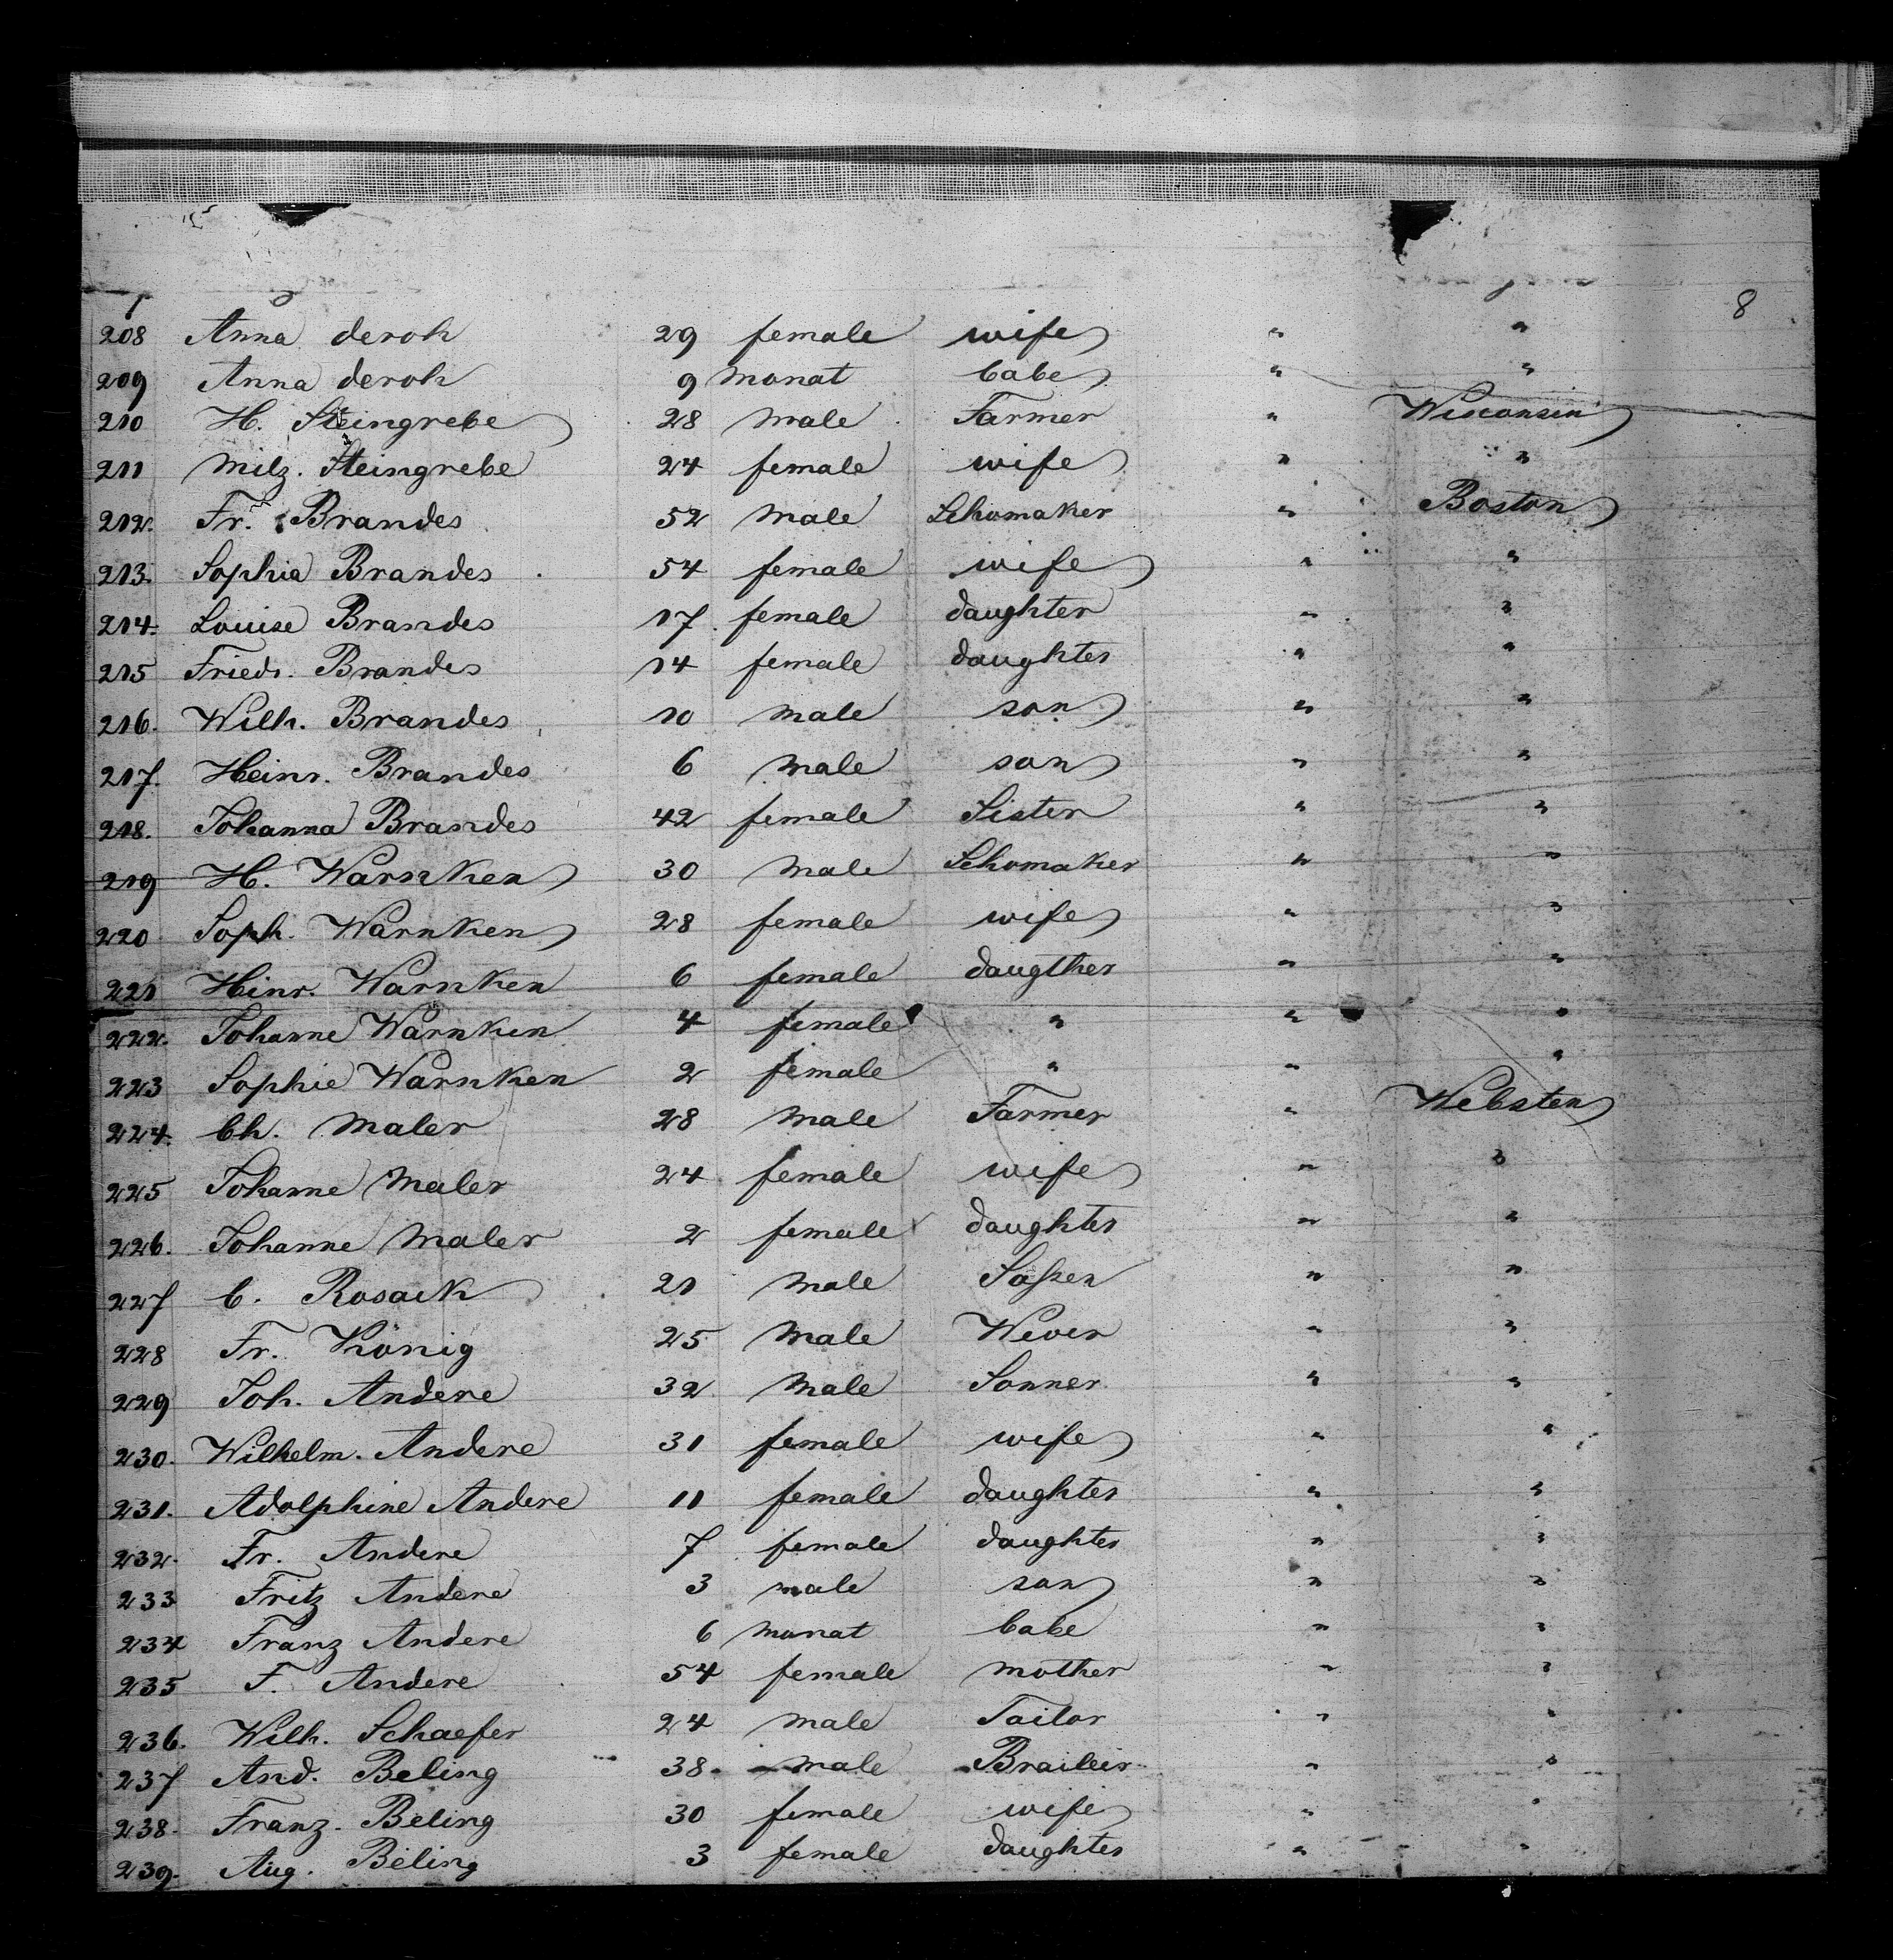 8
208 Anna deroh 29 female wife " "
209 Anna deroh 9 monat babe " "
210 H. Steingrebe 28 male Farmer " Wisconsin
211 Milz. Steingrebe 24 female wife " "
212. Fr. Brandes 52 male Schomaker " Boston
213. Sophia Brandes 54 female wife " "
214. Louise Brandes 17 female daughter " "
215 Friedr. Brandes 14 female daughter " "
216. Wilh. Brandes 10 male son " "
217. Heinr. Brandes 6 male son " "
218. Johanna Brandes 42 female Sister " "
219 H. Warnken 30 male Schomaker " "
220 Soph. Warnken 28 female wife " "
221 Hinr. Warnken 6 female daugther " "
222. Johanne Warnken 4 female " " "
223 Sophie Warnken 2 female " " "
224. Ch. Maler 28 male Farmer " Webster
225 Johanne Maler 24 female wife " "
226. Johanne Maler 2 female daughter " "
227 C. Rosack 21 male " "
228 Fr. König 25 male Wever " "
229 Joh. Andere 32 male Sonner " "
230. Wilhelm. Andere 31 female wife " "
231. Adolphine Andere 11 female daughter " "
232. Fr. Andere 7 female daughter " "
233 Fritz Andere 3 male son " "
234 Franz Andere 6 monat babe " "
235 F. Andere 54 female mother " "
236. Wilh. Schaefer 24 male Tailor " "
237 And. Beling 38 male " "
238. Franz. Beling 30 female wife " "
239. Aug. Beling 3 female daughter " "